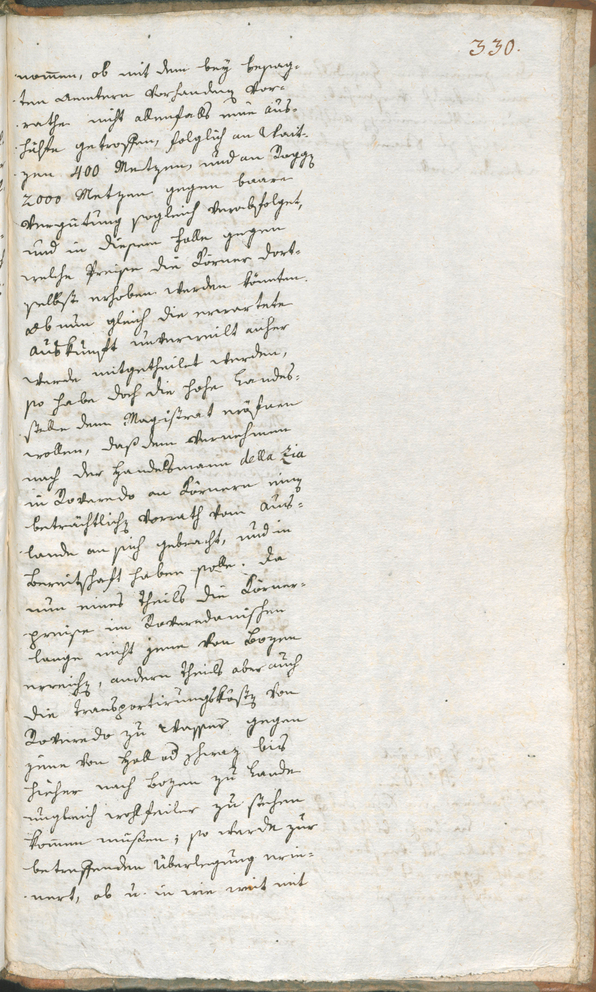 330.
nommen, ob mit dem bey besag-
ten Aemtern vorhanden Vor-
rathe nicht allenfalls eine Aus-
hülfe getroffen, folglich an Wait-
zen 400 Metzen, und an Roggen
2000 Metzen gegen baare
Vergütung sogleich verabfolget,
und in diesem Falle gegen
welche Preise die Körner dort-
selbst erhoben werden könnten.
Ob nun gleich die erwartete
Auskunft unverweilt anher
werde mitgetheilet werden,
so habe doch die hohe Landes-
stelle dem Magistrat eröfnen
wollen, daß dem Vernehmen
nach der Handelsmann della Zia
in Roveredo an Körnern einen
beträchtlichen Vorrath vom Aus-
lande an sich gebracht, und in
Bereitschaft haben solle. Da
nun eines Theils die Körner-
preise im Roveredanischen
lange nicht jene von Bozen
erreichen, andern Theils aber auch
die Transportirungskösten von
Roveredo zu Wasser gegen
jene von Hall bis
hieher nach Bozen zu Lande
ungleich wohlfeiler zu stehen
kommen müßen; so werde zur
betreffenden Überlegung erin-
nert, ob u. in wie weit mit